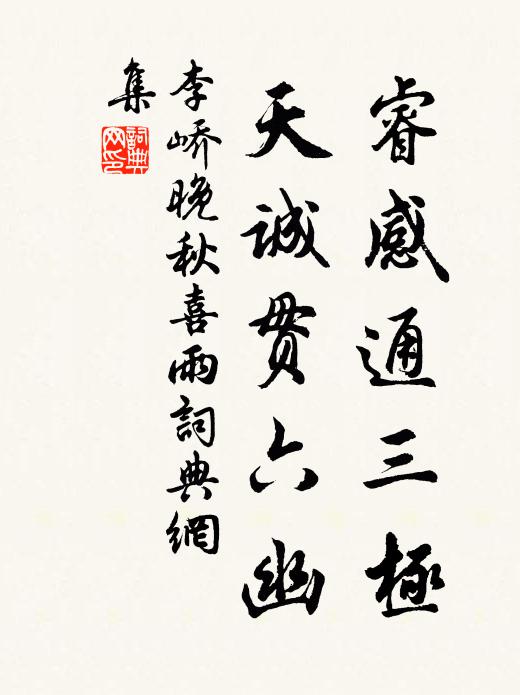 睿感通三極
天誠貫六幽
李嶠晚秋喜雨詞典網
集
詞典
网印